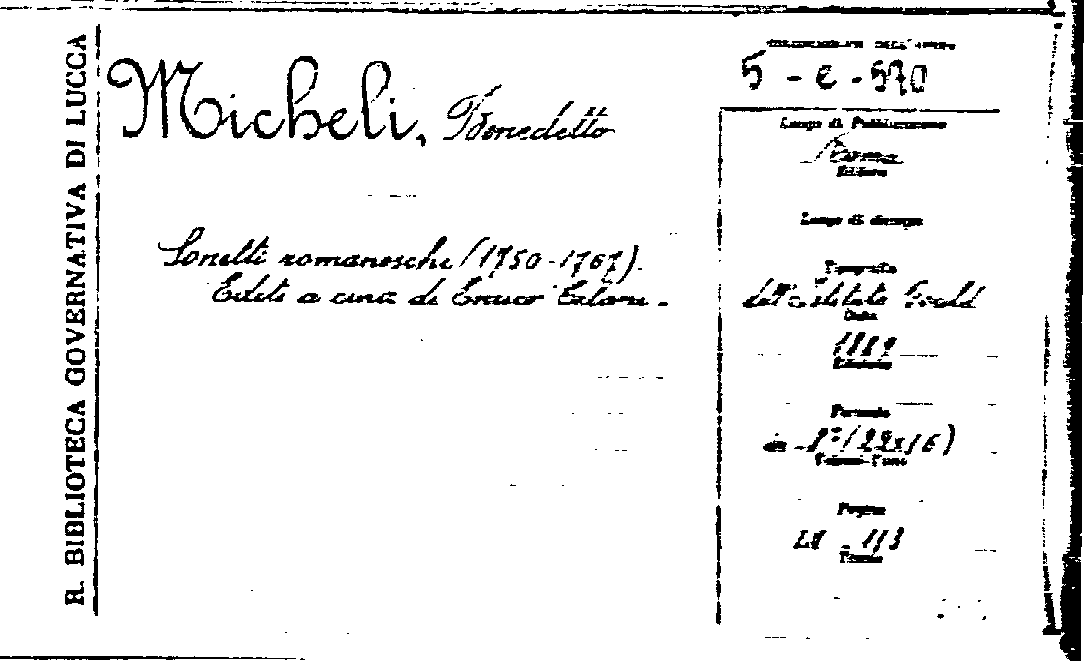 R. BIBLIOTECA GOVERNATIVA DI LUCCA
Micheli, Benedetto
Sonetti romaneschi (1750-1767).
Editi a cura di Enrico
COLLOCAZIONE DELL'OPERA
5 - e - 570
Luogo di Pubblicazione
Roma
Editore
Luogo di stampa
Tipografia
dell'Istituto Gould
Data
1889
Edizione
Formato
in - 8º (22x16)
Volumi-Tomi
Pagine
113